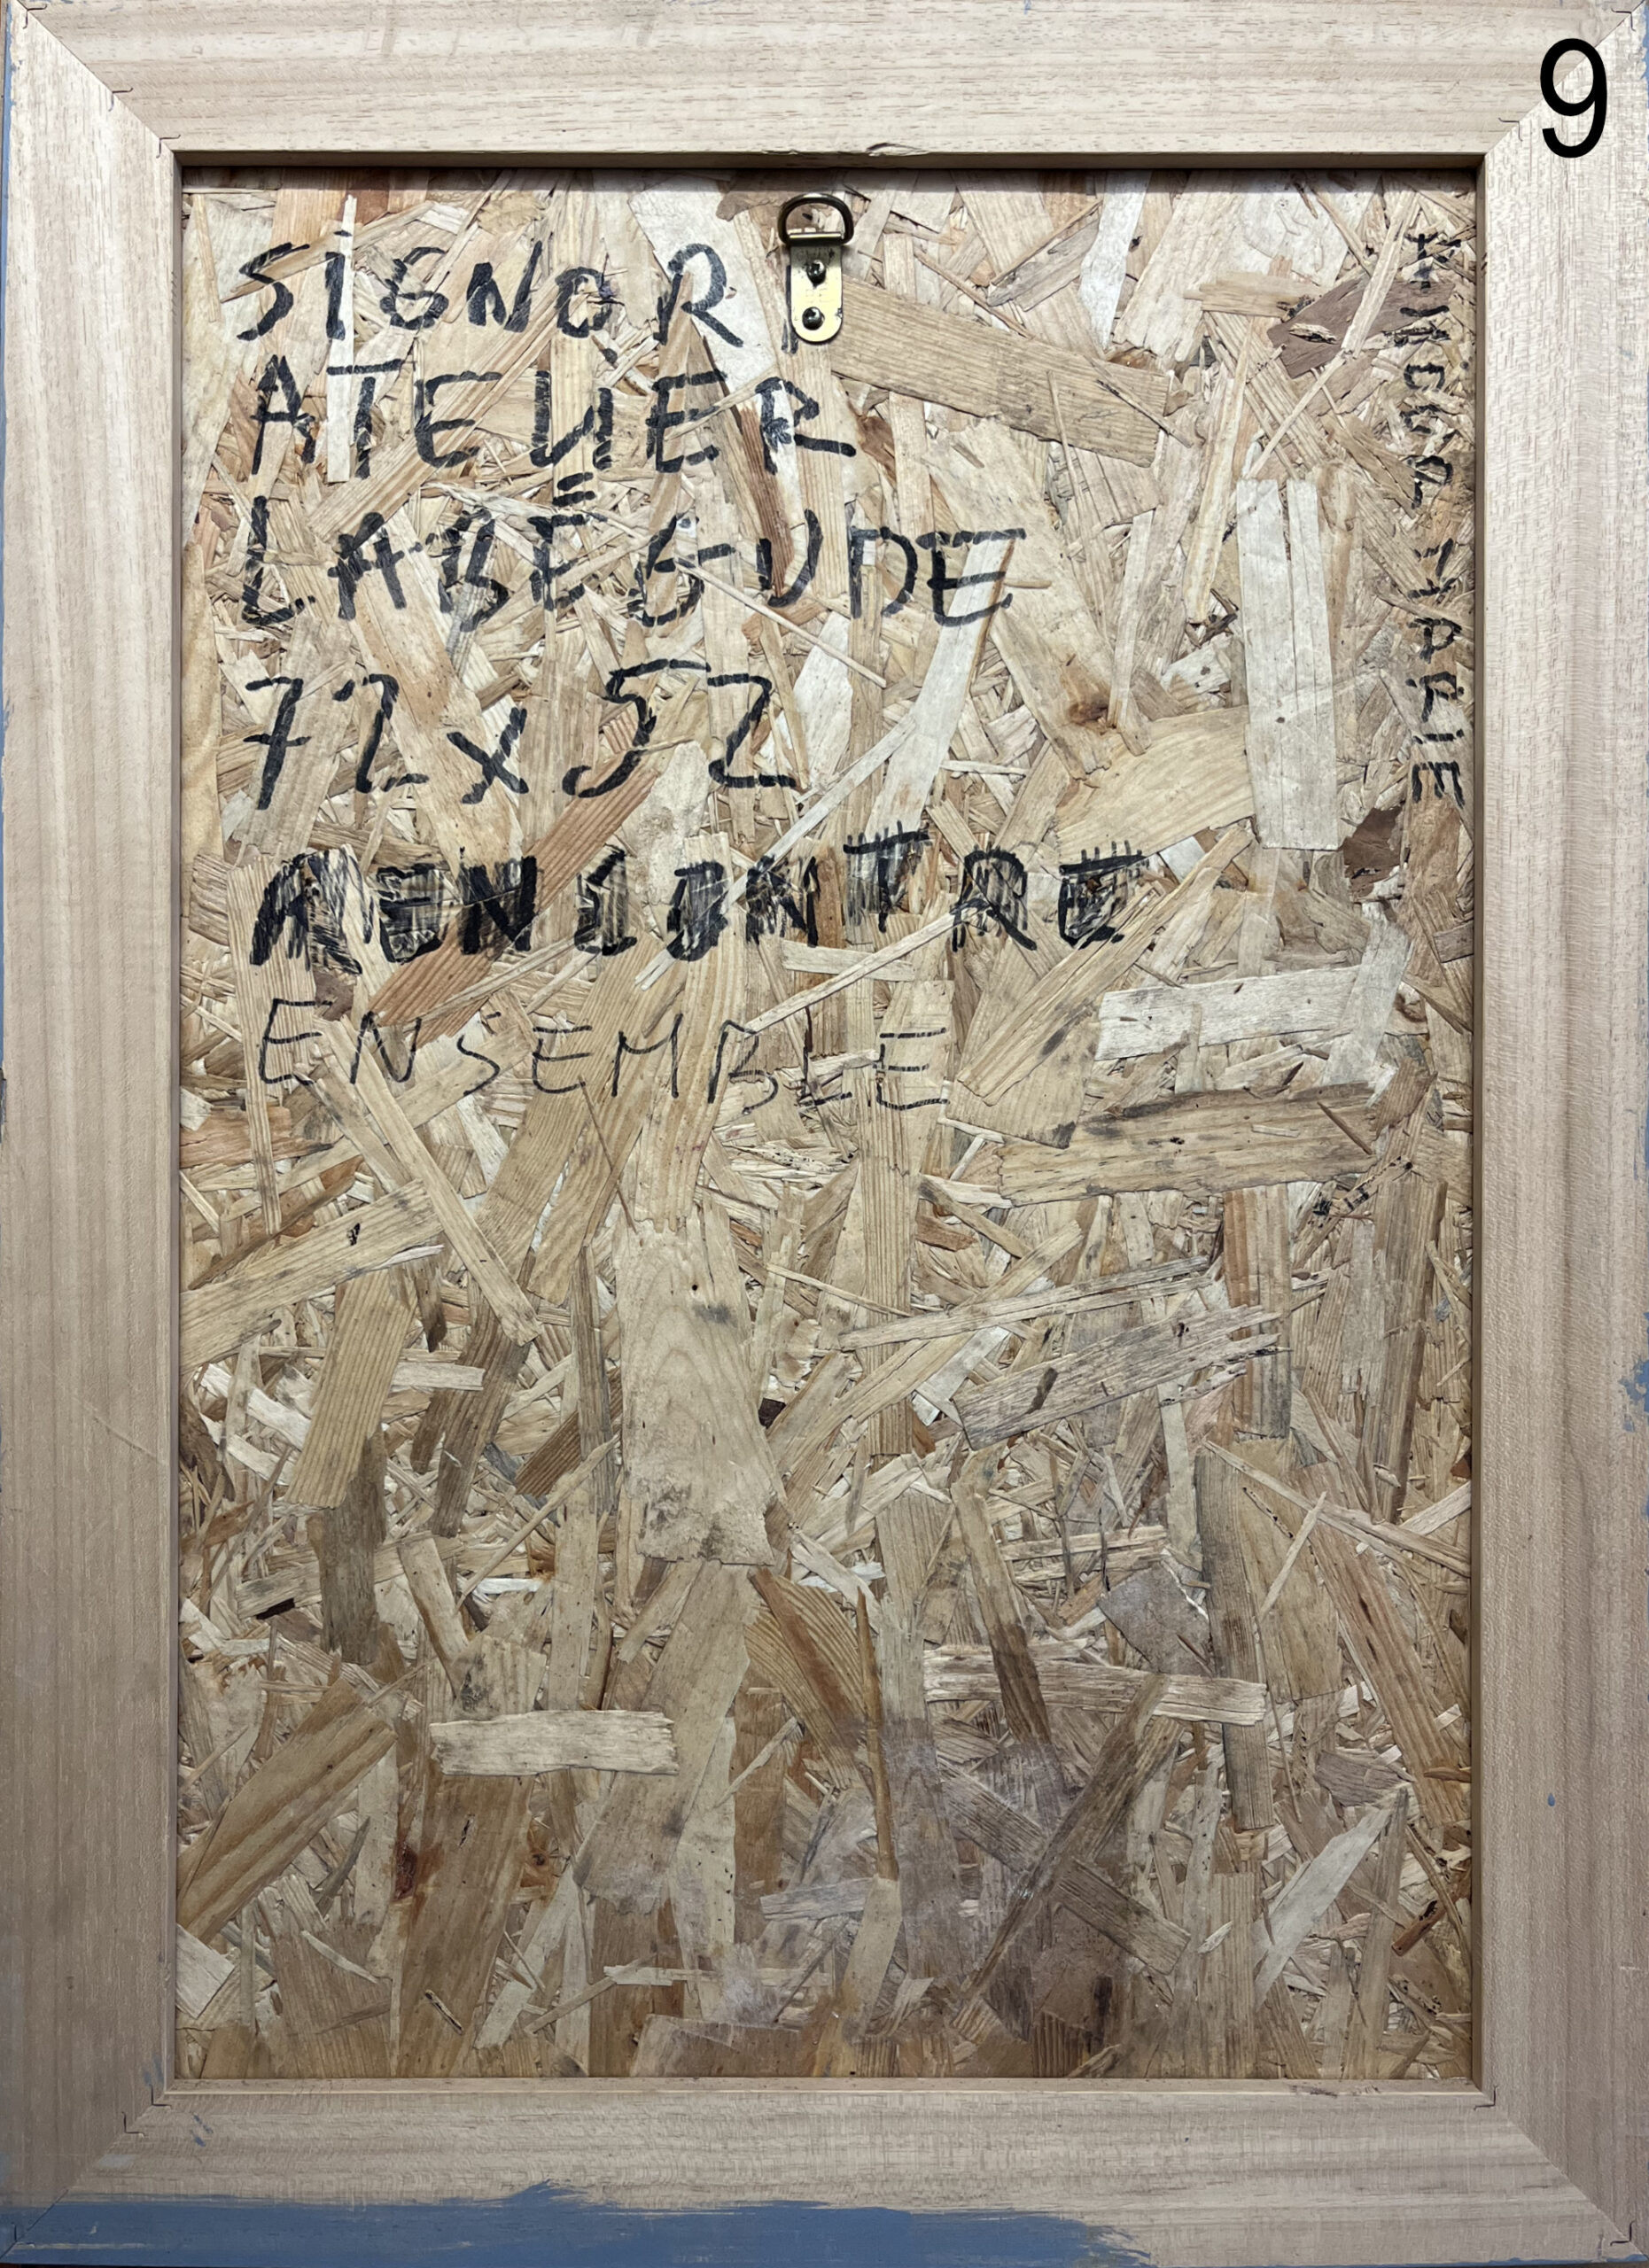 9
SIGNOR
ATELIER
LABÉGUDE
72 x 52
RENCONTRE
ENSEMBLE